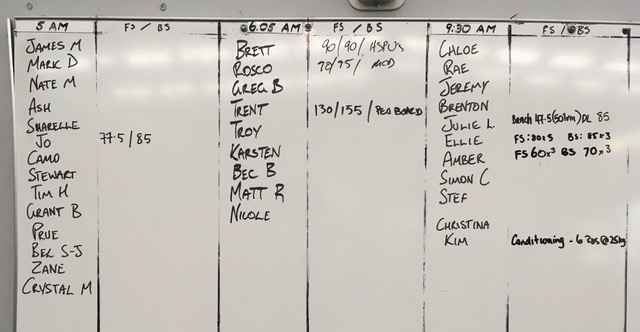 5 AM
FS / BS
JAMES M
MARK D
NATE M
ASH
SHARELLE
JO 77.5/85
CAMO
STEWART
TIM H
GRANT B
PRUE
BEC S-J
ZANE
CRYSTAL M
6.05 AM
FS / BS
BRETT 90/90/ HSPU'S
ROSCO 70/95/ MOD
GREG B
TRENT 130/155/ PEG BOARD
TROY
KARSTEN
BEC B
MATT R
NICOLE
9:30 AM
FS / BS
CHLOE
RAE
JEREMY
BRENTON
JULIE L. Bench 47.5 DL 85
ELLIE FS: BS: 85x3
AMBER FS 60x3 BS 70x3
SIMON C
STEF
CHRISTINA
KIM Conditioning - 6